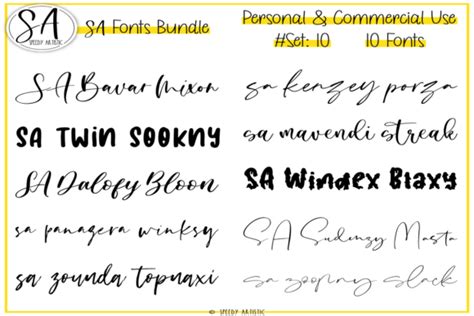 SA
SPEEDY ARTISTIC
SA Fonts Bundle
Personal & Commercial Use
#Set: 10 10 Fonts
SA Bavar Mixon
sa kenzey porza
SA TWIN SOOKNY
sa mavendi streak
SA Dalofy Bloon
SA Windex Blaxy
sa panagera winksy
SA Sudenzy Masta
sa zounda topnaxi
sa zoopny slack
© SPEEDY ARTISTIC